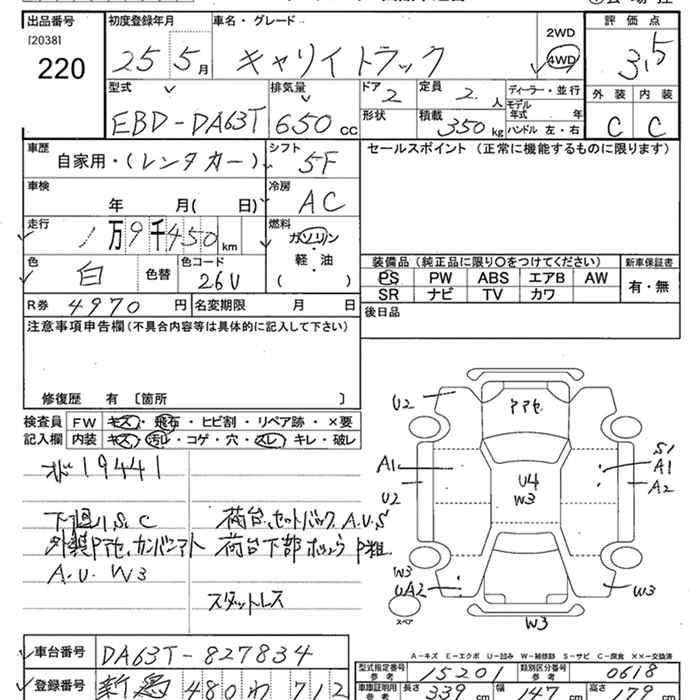 出品番号 初度登録年月 車名・グレード 評価点
[2038]
220
25 5月 キャリイトラック 2WD 4WD 3.5
型式 排気量 ドア 定員 ディーラー・並行 外装 内装
EBD-DA63T 650 CC 2 2 人 モデル年式 年 C C
形状 積載 350 kg ハンドル 左・右
車歴 シフト セールスポイント (正常に機能するものに限ります)
自家用・(レンタカー) 5F
車検 冷房
年 月( 日) AC
走行 燃料
1万9千450km ガソリン・軽・油
( )
色 白 色替 色コード 26U
装備品 (純正品に限り〇をつけてください) 新車保証書
PS PW ABS エアB AW 有・無
SR ナビ TV カワ
R券 4970 円 名変期限 月 日 後日品
注意事項申告欄 (不具合内容等は具体的に記入して下さい)
修復歴 有 〔箇所 〕
検査員 FW キズ・飛石・ヒビ割・リペア跡・×要
記入欄 内装 キズ・汚レ・コゲ・穴・スレ・キレ・破レ
19441
下廻り、S、C 荷台、セットバック A.U.S
荷台下部
A.U. W3
スタットレス
U2 アアセ
A1 S1 A1
U2 U4 W3 A2
W3
UA2 W3
スペア W3
A-キズ E-エクボ U-凹み W-補修跡 S-サビ C-腐食 ××-交換済
車台番号 DA63T-827834 型式指定番号 参考 15201 類別区分番号 参考 0618
登録番号 新潟 480 わ 712 車庫証明用 参考 長さ 339 cm 幅 147 cm 高さ 178 cm